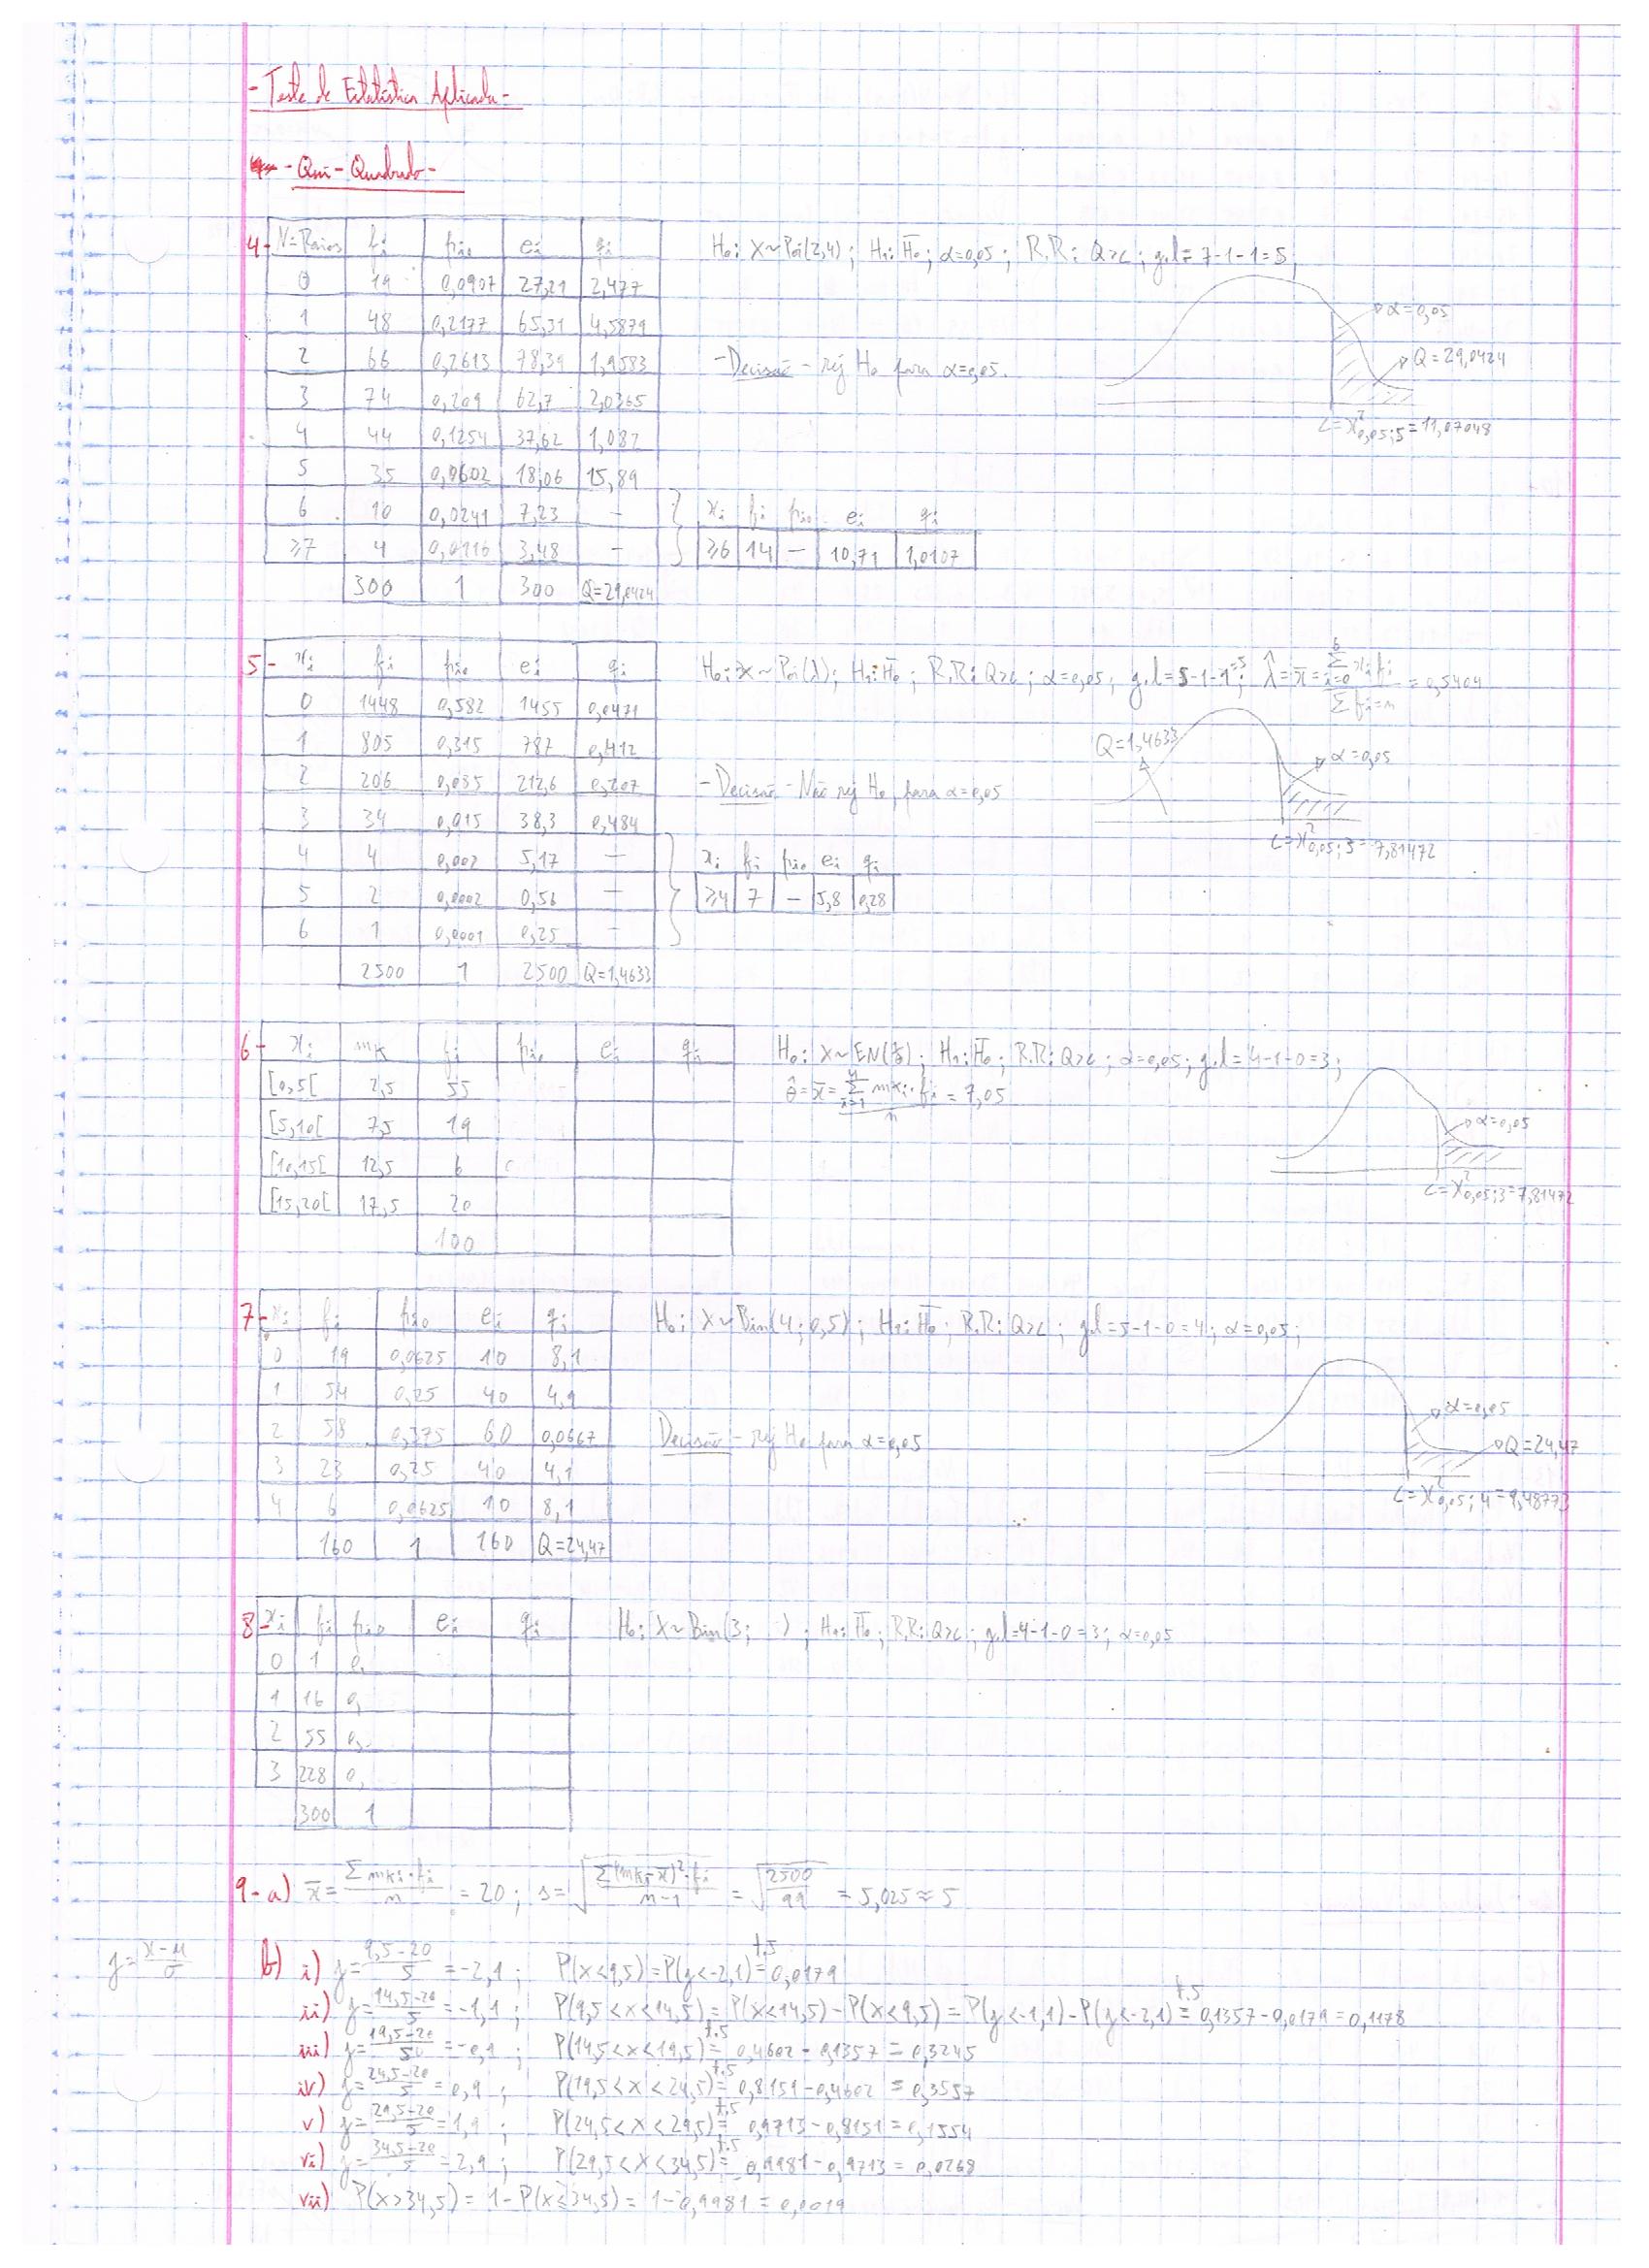 - Teste de Estatística Aplicada -
- Qui - Quadrado -
4- Nº Raios fi pio ei qi
0 19 0,0907 27,21 2,477
1 48 0,2177 65,31 4,5879
2 66 0,2613 78,39 1,9583
3 74 0,209 62,7 2,0365
4 44 0,1254 37,62 1,082
5 35 0,0602 18,06 15,89
6 10 0,0241 7,23 -
≥7 4 0,0116 3,48 -
300 1 300 Q=29,0424
H0: X~Poi(2,4); H1: H̅0; α=0,05; R.R: Q>c; g.l=7-1-1=5;
α=0,05
Q=29,0424
c=χ²0,05;5=11,07048
- Decisão - rej H0 para α=0,05.
xi fi pio ei qi
≥6 14 - 10,71 1,0107
5- xi fi pio ei qi
0 1448 0,582 1455 0,0471
1 805 0,315 787 0,412
2 206 0,085 212,6 0,207
3 34 0,015 38,3 0,484
4 4 0,002 5,17 -
5 2 0,0002 0,56 -
6 1 0,0001 0,25 -
2500 1 2500 Q=1,4633
H0: X~Poi(λ); H1: H̅0; R.R: Q>c; α=0,05; g.l=5-1-1=3; λ̂=x̅=Σ xi fi / Σ fi=n = 0,5404
Q=1,4633
α=0,05
c=χ²0,05;3=7,81472
- Decisão - Não rej H0 para α=0,05
xi fi pio ei qi
≥4 7 - 5,8 0,28
6- xi mk fi pio ei qi
[0,5[ 2,5 55
[5,10[ 7,5 19
[10,15[ 12,5 6
[15,20[ 17,5 20
100
H0: X~EN(1/θ); H1: H̅0; R.R: Q>c; α=0,05; g.l=4-1-0=3;
θ̂=x̅=Σ mki.fi / n = 7,05
α=0,05
c=χ²0,05;3=7,81472
7- xi fi pio ei qi
0 19 0,0625 10 8,1
1 54 0,25 40 4,9
2 58 0,375 60 0,0667
3 23 0,25 40 4,1
4 6 0,0625 10 8,1
160 1 160 Q=24,47
H0: X~Bin(4; 0,5); H1: H̅0; R.R: Q>c; g.l=5-1-0=4; α=0,05;
α=0,05
Q=24,47
c=χ²0,05;4=9,48773
Decisão - rej H0 para α=0,05
8- xi fi pio ei qi
0 1 0,
1 16 0,
2 55 0,
3 228 0,
300 1
H0: X~Bin(3; ); H1: H̅0; R.R: Q>c; g.l=4-1-0=3; α=0,05
9- a) x̅=Σ mki.fi / n = 20; s=√(Σ(mki-x̅)².fi / n-1) = √(2500/99) = 5,025≈5
z=(x-μ)/σ
b) i) z=(9,5-20)/5=-2,1; P(x<9,5)=P(z<-2,1) t.5= 0,0179
ii) z=(14,5-20)/5=-1,1; P(9,5<x<14,5)=P(x<14,5)-P(x<9,5)=P(z<-1,1)-P(z<-2,1) t.5= 0,1357-0,0179=0,1178
iii) z=(19,5-20)/5=-0,1; P(14,5<x<19,5) t.5= 0,4602-0,1357=0,3245
iv) z=(24,5-20)/5=0,9; P(19,5<x<24,5) t.5= 0,8159-0,4602=0,3557
v) z=(29,5-20)/5=1,9; P(24,5<x<29,5) t.5= 0,9713-0,8159=0,1554
vi) z=(34,5-20)/5=2,9; P(29,5<x<34,5) t.5= 0,9981-0,9713=0,0268
vii) P(x>34,5)=1-P(x≤34,5)=1-0,9981=0,0019